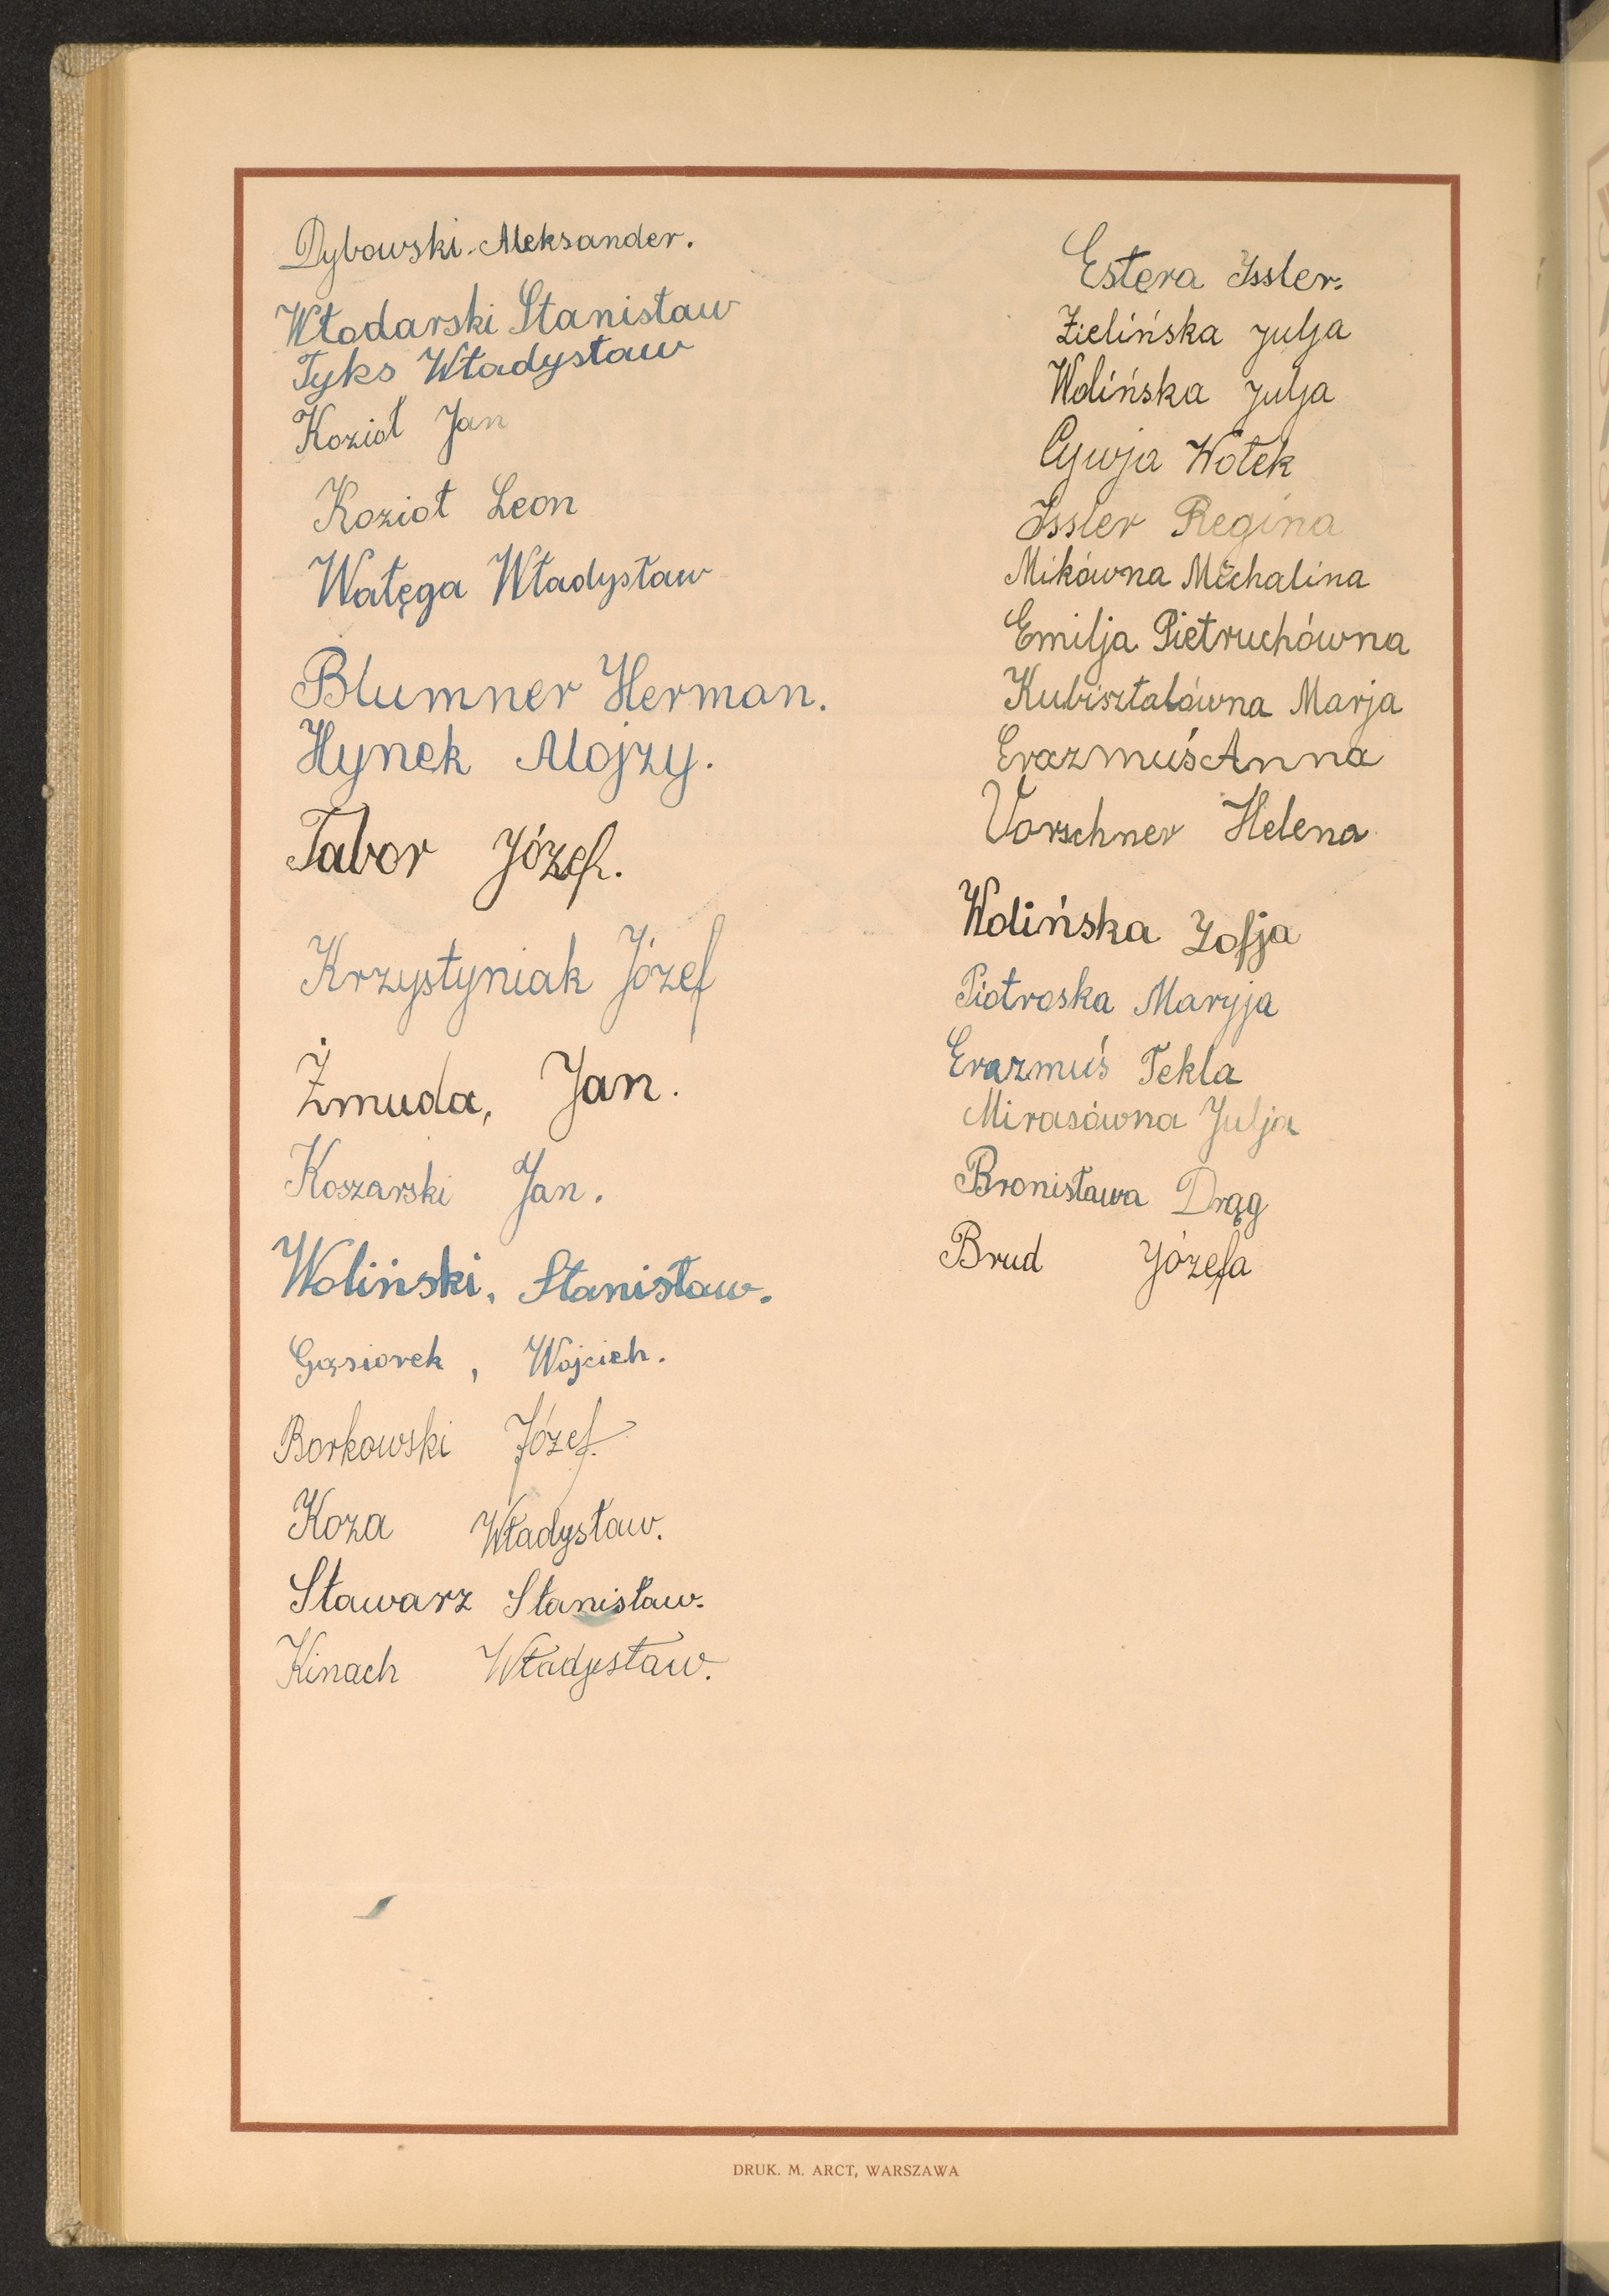 Dybowski Aleksander.
Włodarski Stanisław
Tyks Władysław
Kozioł Jan
Kozioł Leon
Wałęga Władysław
Blumner Herman.
Hynek Alojzy.
Tabor Józef.
Krzystyniak Józef
Żmuda, Jan.
Koszarski Jan.
Woliński, Stanisław.
Gąsiorek, Wojcieh.
Borkowski Józef.
Koza Władysław.
Stawarz Stanisław.
Kinach Władysław.
Estera Issler.
Zielińska Julja
Wolińska Julja
Cywja Wołek
Issler Regina
Mikówna Michalina
Emilja Pietruchówna
Kubisztalówna Marja
Erazmuś Anna
Vorschner Helena
Wolińska Zofja
Piotroska Maryja
Erazmuś Tekla
Mirasówna Julja
Bronisława Drąg
Brud Józefa
DRUK. M. ARCT, WARSZAWA